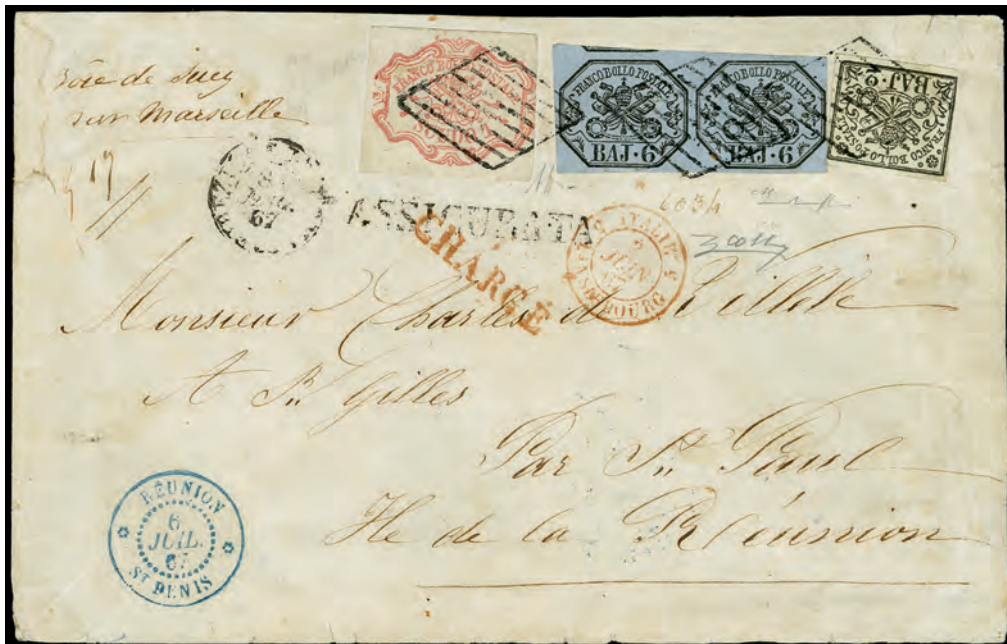 voie de Suez
sur Marseille
FRANCO BOLLO POSTALE
SCUDO 1
FRANCO BOLLO POSTALE
BAJ·6
FRANCO BOLLO POSTALE
BAJ·6
FRANCO BOLLO POSTALE
BAJ·2
67
ASSICURATA
CHARGÉ
ITALIE 5
JUIN
Monsieur Charles de
A St. Gilles
Par St. Paul
Ile de la Réunion
RÉUNION
6
JUIL.
67
ST DENIS